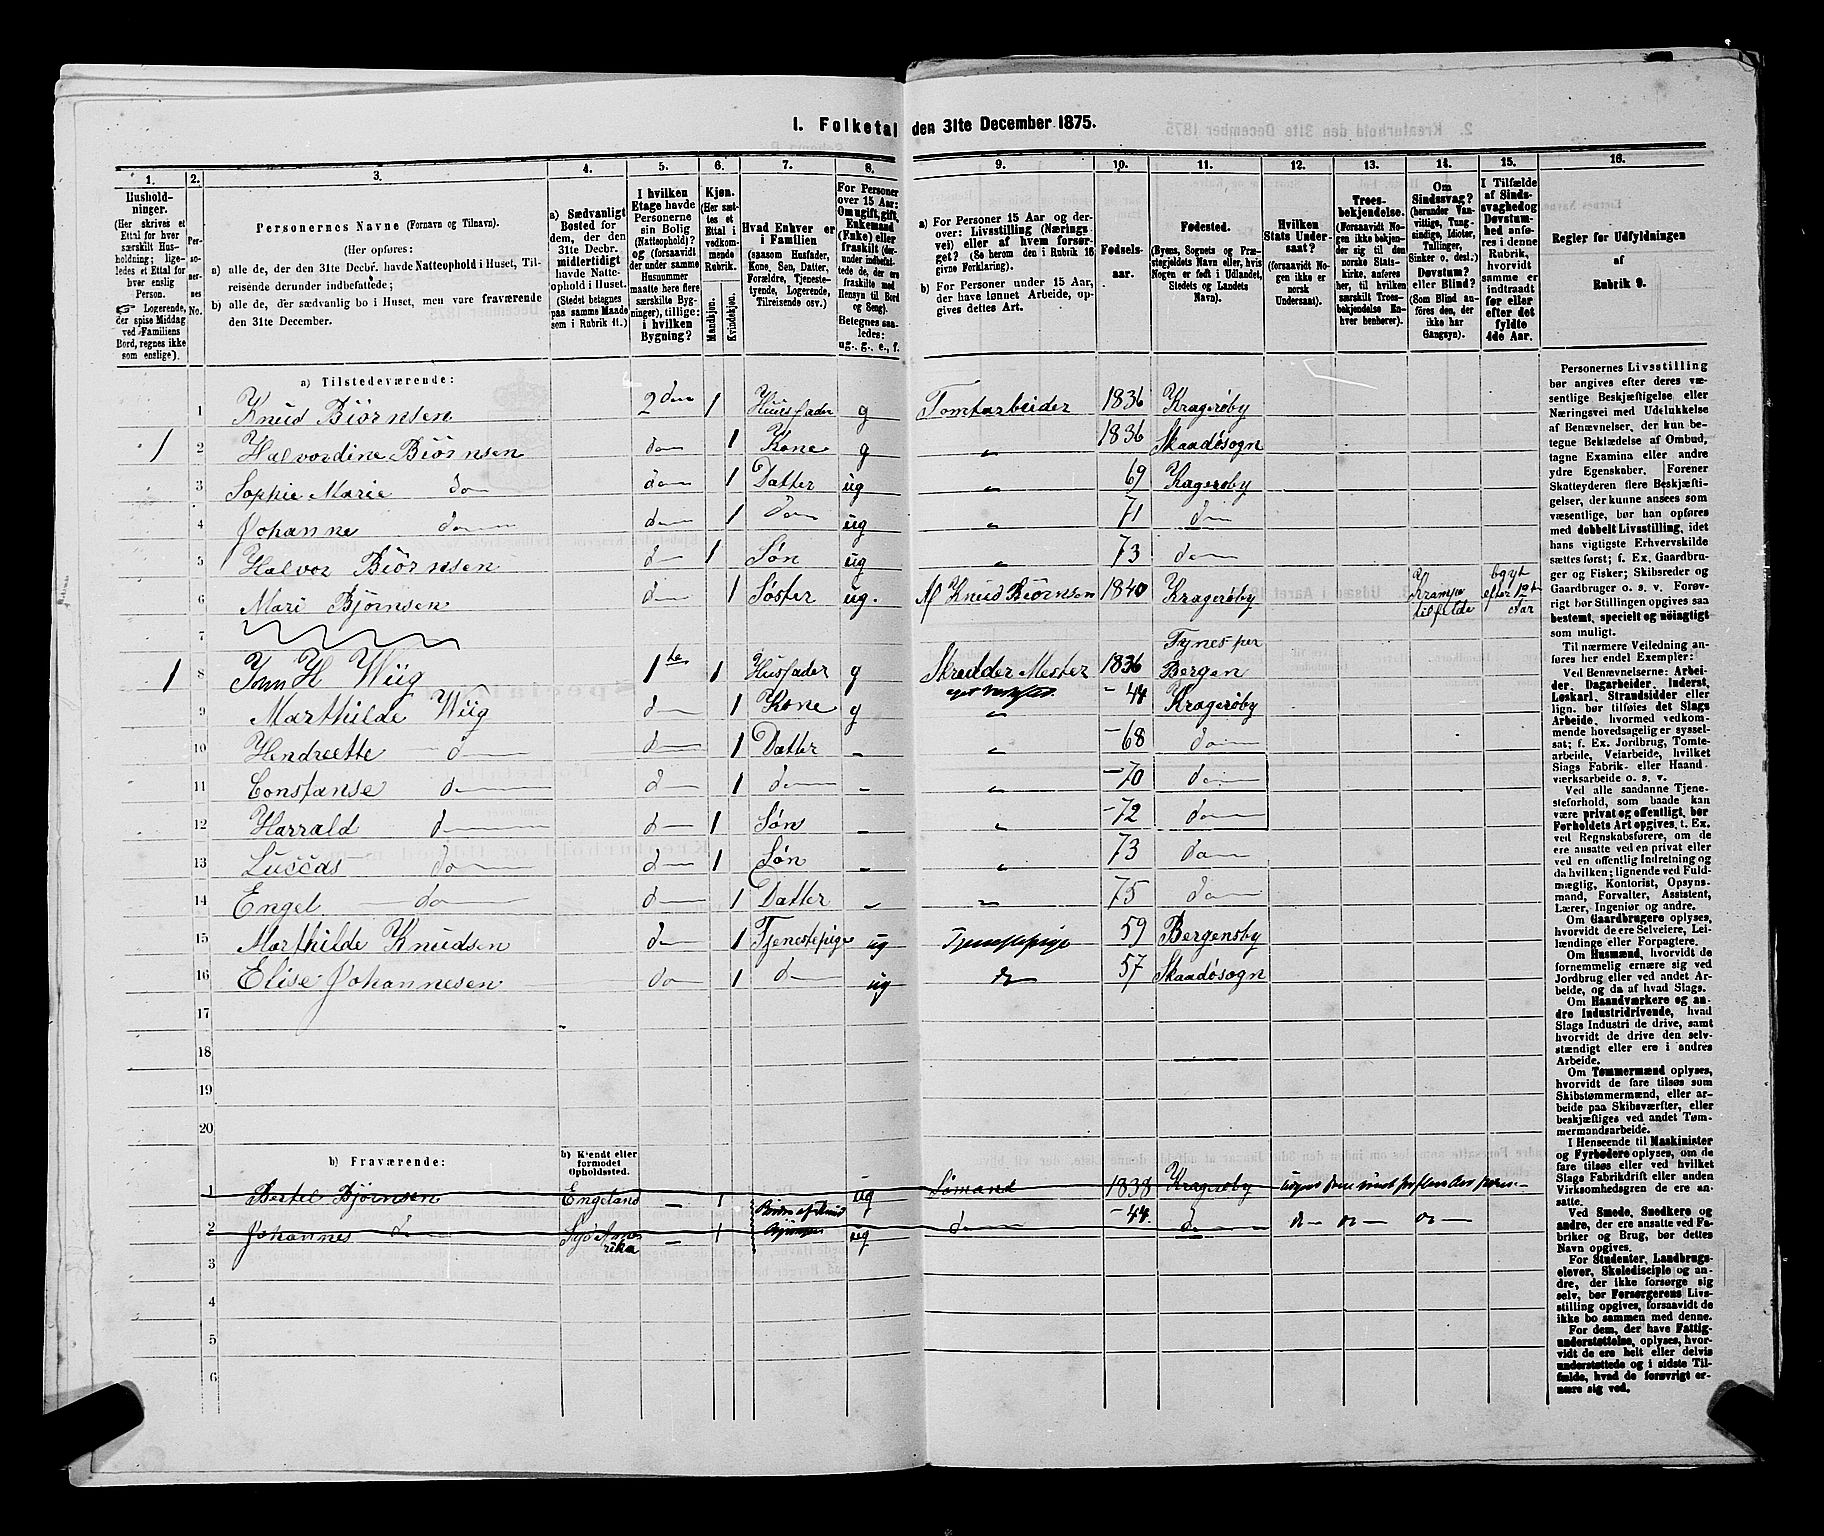 1. Folketal den 31te December 1875.
1. 2. 3. 4. 5. 6. 7. 8. 9. 10. 11. 12. 13. 14. 15. 16.
Husholdninger. (Her skrives et Ettal for hver særskilt Husholdning; ligeledes et Ettal for hver enslig Person. Logerende, der spise Middag ved Familiens Bord, regnes ikke som enslige).
Personernes No.
Personernes Navne (Fornavn og Tilnavn).
(Her opføres:
a) alle de, der den 31te Decbr. havde Natteophold i Huset, Tilreisende derunder indbefattede;
b) alle de, der sædvanlig bo i Huset, men vare fraværende den 31te December.
a) Sædvanligt Bosted for dem, der den 31te Decbr. midlertidigt havde Natteophold i Huset. (Stedet betegnes paa samme Maade som i Rubrik 11.)
I hvilken Etage havde Personerne sin Bolig (Natteophold)? og (forsaavidt der under samme Husnummer maatte here flere særskilte Bygninger), tillige: i hvilken Bygning?
Kjøn. (Her sættes et Ettal i vedkommende Rubrik.
Mandkjøn. Kvindekjøn.
Hvad Enhver er i Familien (saasom Husfader, Kone, Søn, Datter, Forældre, Tjenestetyende, Logerende, Tilreisende osv.)
For Personer over 15 Aar: Om ugift, gift, Enkemand (Enke) eller fraskilt (derunder indbefattede de, der ere fraskilte med Hensyn til Bord og Seng). Betegnes saaledes: ug., g., e., f.
a) For Personer 15 Aar og derover: Livsstilling (Næringsvei) eller af hvem forsørget? (Se herom den i Rubrik 16 givne Forklaring).
b) For Personer under 15 Aar, der have lønnet Arbeide, opgives dettes Art.
Fødselsaar.
Fødested. (Byens, Sognets og Præstegjeldets Navn eller, hvis Nogen er født i Udlandet, Stedets og Landets Navn).
Hvilken Stats Undersaat? (forsaavidt Nogen ikke er norsk Undersaat).
Troesbekjendelse. (Forsaavidt Nogen ikke bekjender sig til den norske Statskirke, anføres her, til hvilken særskilt Troesbekjendelse Enhver henhører).
Om Sindssvag? (herunder Vanvittige, Tungsindige, Idioter, Tullinger, Sinker o. desl.) Døvstum? eller Blind? (Som Blind anføres den, der ikke har Gangsyn).
I Tilfælde af Sindssvaghed og Døvstumhed anføres i denne Rubrik, hvorvidt samme er indtraadt før eller efter det fyldte 4de Aar.
Regler for Udfyldningen af Rubrik 9.
a) Tilstedeværende:
1 Knud Biørnsen 2den 1 Huusfader g Tomtarbeider 1836 Kragerøby
1 2 Halvordine Biörnsen do 1 Kone g " 1836 Skaadøsogn
3 Sophie Marie do do 1 Datter ug " 69 Kagerøby
4 Johanne do do 1 do ug " 71 do
5 Halvor Biörnsen do 1 Søn ug " 73 do
6 Mari Bjørnsen do 1 Søster ug. Knud Biørnsen 1840 Kragerøby Krampe tilfelde efter Aar
7
1 8 H Wiig 1te 1 Husfader g Skredder Mester 1836 Bergen
9 Marthilde Wiig do 1 Kone g " -44 Kragerøby
10 Hendreette do do 1 Datter - " -68 do
11 Constanse do do 1 do - " -70 do
12 Harrald do do 1 Søn - " -72 do
13 Luccas do do 1 Søn - " 73 do
14 Engel do do 1 Datter - " 75 do
15 Marthilde Knudsen do 1 Tjenestepige ug Tjenestepige 59 Bergensby
16 Elise Johannesen do 1 do ug do 57 Skaadøsogn
17
18
19
20
b) Fraværende:
b) Kjendt eller formodet Opholdssted.
1 Bertel Bjørnsen Engeland - 1 ug Sømand 1838 Kragerøby
2 Johannes do Syd Amerika - 1 ug do -44. do do do do
3
4
5
6
Personernes Livsstilling
bør angives efter deres væsentlige
Beskjæftigelse eller
Næringsvei med Udelukkelse
af Benævnelser, der kun betegne
Beklædelse af Ombud,
tagne Examina eller andre
ydre Egenskaber. Forener
Skatteyderen flere Beskjæftigelser,
der kunne ansees som
væsentlige, bør han opføres
med dobbelt Livsstilling, idet
hans vigtigste Erhvervskilde
sættes først; f. Ex. Gaardbruger
og Fisker; Skibsreder og
Gaardbruger o. s. v. Forøvrigt
bør Stillingen opgives saa
bestemt, specielt og nöiagtigt
som muligt.
Til nærmere Veiledning anføres
her endel Exempler:
Ved Benævnelserne: Arbeider,
Dagarbeider, Inderst,
Løskarl, Strandsidder eller
lign. bør tilføies det Slags
Arbeide, hvormed vedkommende
hovedsagelig er sysselsat;
f. Ex. Jordbrug, Tomtearbeide,
Veiarbeide, hvilket
Slags Fabrik- eller Haandværksarbeide
o. s. v.
Ved alle saadanne Tjenesteforhold,
som baade kan
være privat og offentligt, bør
Forholdets Art opgives, t. Ex.
ved Regnskabsførere, om de
ere ansatte ved en privat eller
ved en offentlig Indretning og
da hvilken; lignende ved Fuldmægtig,
Kontorist, Opsynsmand,
Forvalter, Assistent,
Lærer, Ingeniør og andre.
Om Gaardbrugere oplyses,
hvorvidt de ere Selveiere, Leilændinge
eller Forpagtere.
Om Husmænd, hvorvidt de
fornemmelig ernære sig ved
Jordbrug eller ved andet Arbeide,
og da af hvad Slags.
Om Haandværkere og andre
Industridrivende, hvad
Slags Industri de drive, samt
hvorvidt de drive den selvstændigt
eller ere i andres
Arbeide.
Om Tømmermænd oplyses,
hvorvidt de fare tilsøs som
Skibstømmermænd, eller arbeide
paa Skibsværfter, eller
beskjæftiges ved andet Tømmermandsarbeide.
I Henseende til Maskinister
og Fyrbødere oplyses, om de
fare tilsøs eller ved hvilket
Slags Fabrikdrift eller anden
Virksomhedsgren de ere ansatte.
Ved Smede, Snedkere og
andre, der ere ansatte ved Fabriker
og Brug, bør dettes
Navn opgives.
For Studenter, Landbrugselever,
Skoledisciple og andre,
der ikke forsørge sig
selv, bør Forsørgerens Livsstilling
opgives, forsaavidt de
ikke bo sammen med denne.
For dem, der have Fattigunderstøttelse,
oplyses, hvorvidt
de ere helt eller delvis
understøttede og i sidste Tilfælde,
hvad de forøvrigt ernære
sig ved.